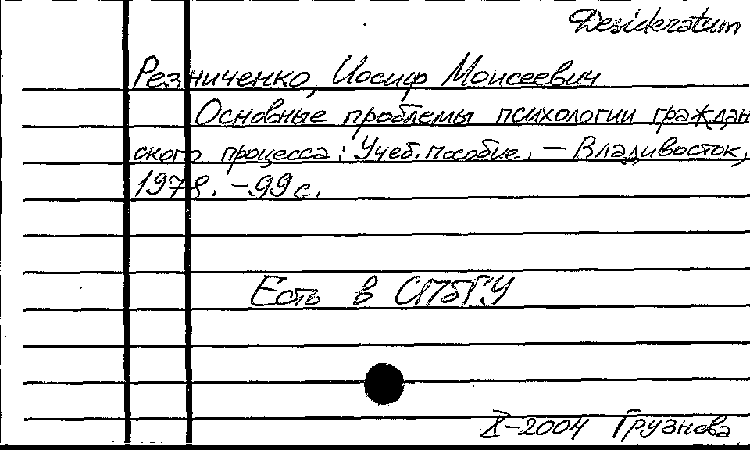 Desideratum
Резниченко, Иосиф Моисеевич
Основные проблемы психологии граждан
ского процесса: Учеб. пособие. – Владивосток,
1978. – 99 с.
Есть в СПбГУ
X-2004 Грузнова